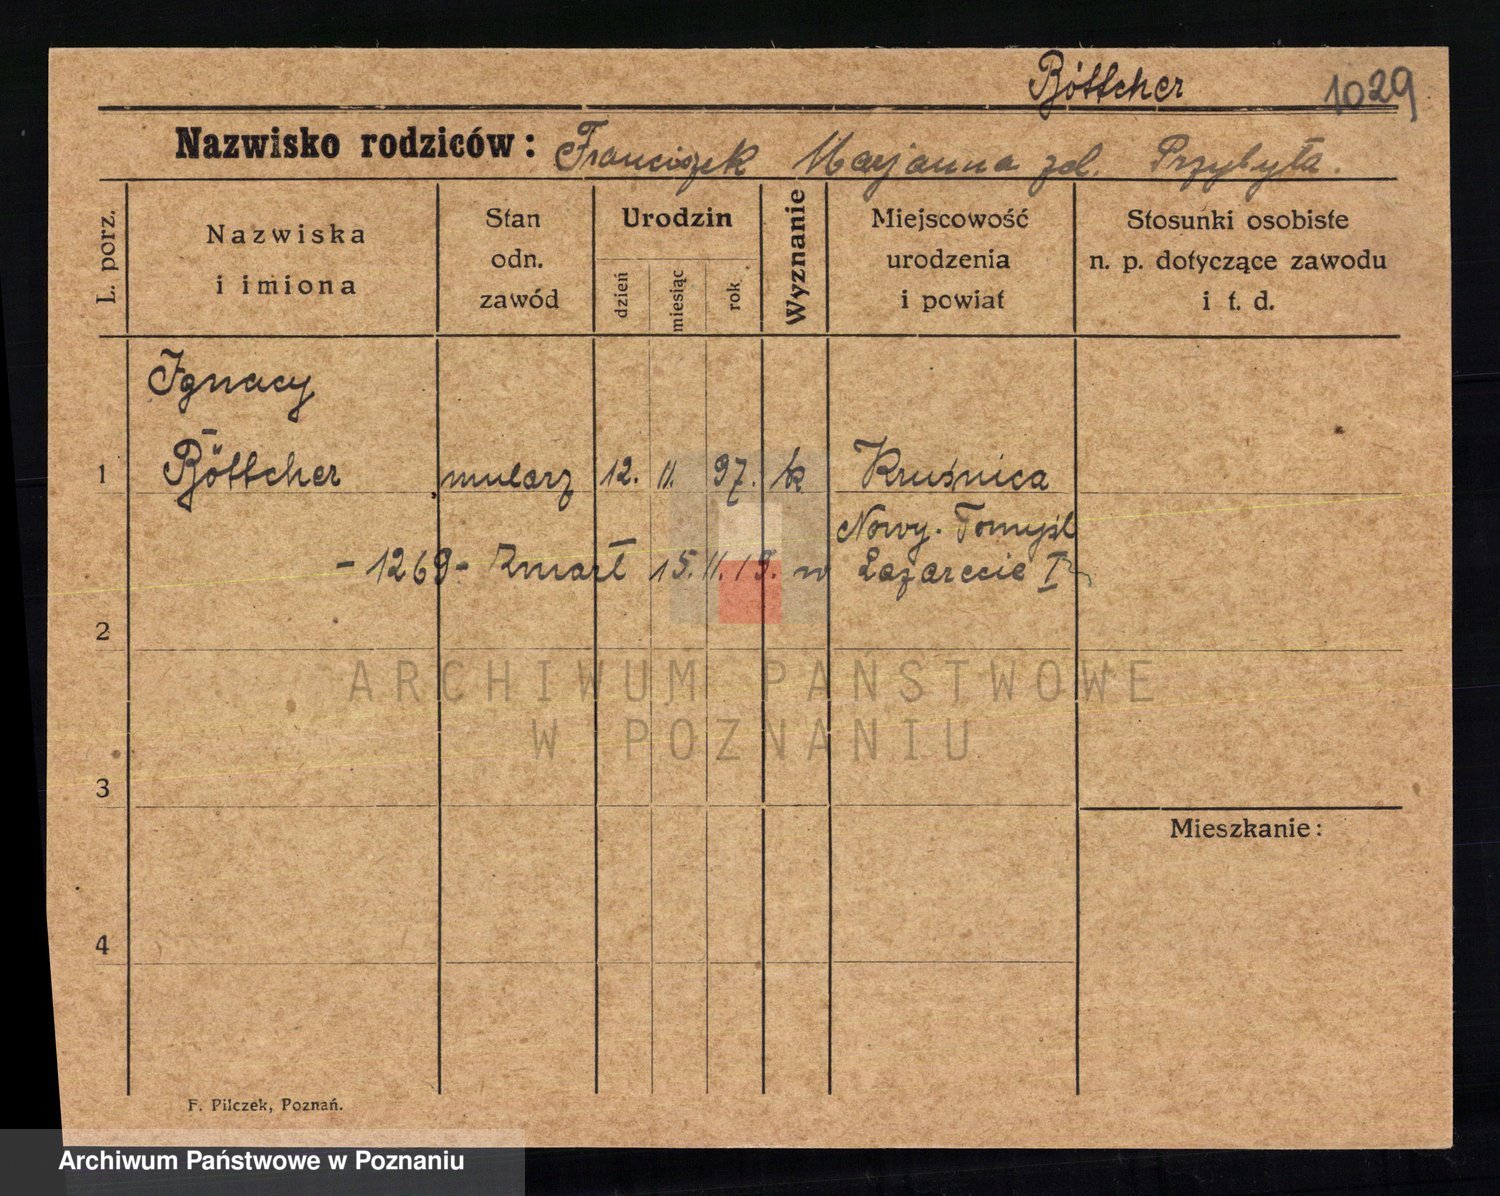 Böttcher 1029
Nazwisko rodziców: Franciszek Marjanna zd. Przybyła.
L. porz.
Nazwiska
i imiona
Stan
odn.
zawód
Urodzin
dzień
miesiąc
rok
Wyznanie
Miejscowość
urodzenia
i powiat
Stosunki osobiste
n. p. dotyczące zawodu
i t. d.
Ignacy
1 Böttcher mularz 12. 11. 97. k Kruśnica
Nowy. Tomyśl
- 1269 - Zmarł 15. 11. 19. w Lazarecie I
2
ARCHIWUM PAŃSTWOWE
W POZNANIU
3
Mieszkanie:
4
F. Pilczek, Poznań.
Archiwum Państwowe w Poznaniu